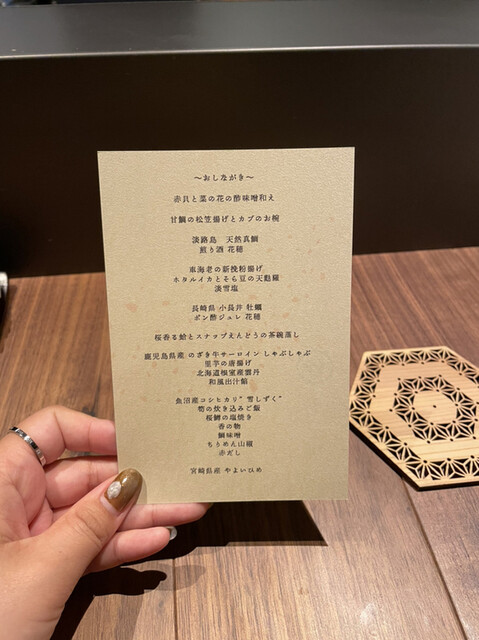 〜おしながき〜
赤貝と菜の花の酢味噌和え
甘鯛の松笠揚げとカブのお椀
淡路島 天然真鯛
煎り酒 花穂
車海老の新挽粉揚げ
ホタルイカとそら豆の天麩羅
淡雪塩
長崎県 小長井 牡蠣
ポン酢ジュレ 花穂
桜香る蛤とスナップえんどうの茶碗蒸し
鹿児島県産 のざき牛サーロイン しゃぶしゃぶ
里芋の唐揚げ
北海道根室産雲丹
和風出汁餡
魚沼産コシヒカリ"雪しずく"
筍の炊き込みご飯
桜鱒の塩焼き
香の物
鯛味噌
ちりめん山椒
赤だし
宮崎県産 やよいひめ